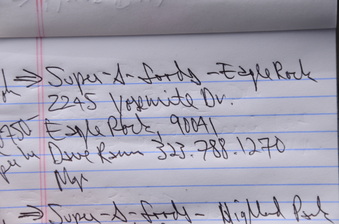 ⇒ Super-A-foods - Eagle Rock
2245 Yosemite Dr.
Eagle Rock, 90041
Dave 323.788.1270
Mgr
⇒ Super-A-foods - Highland Park